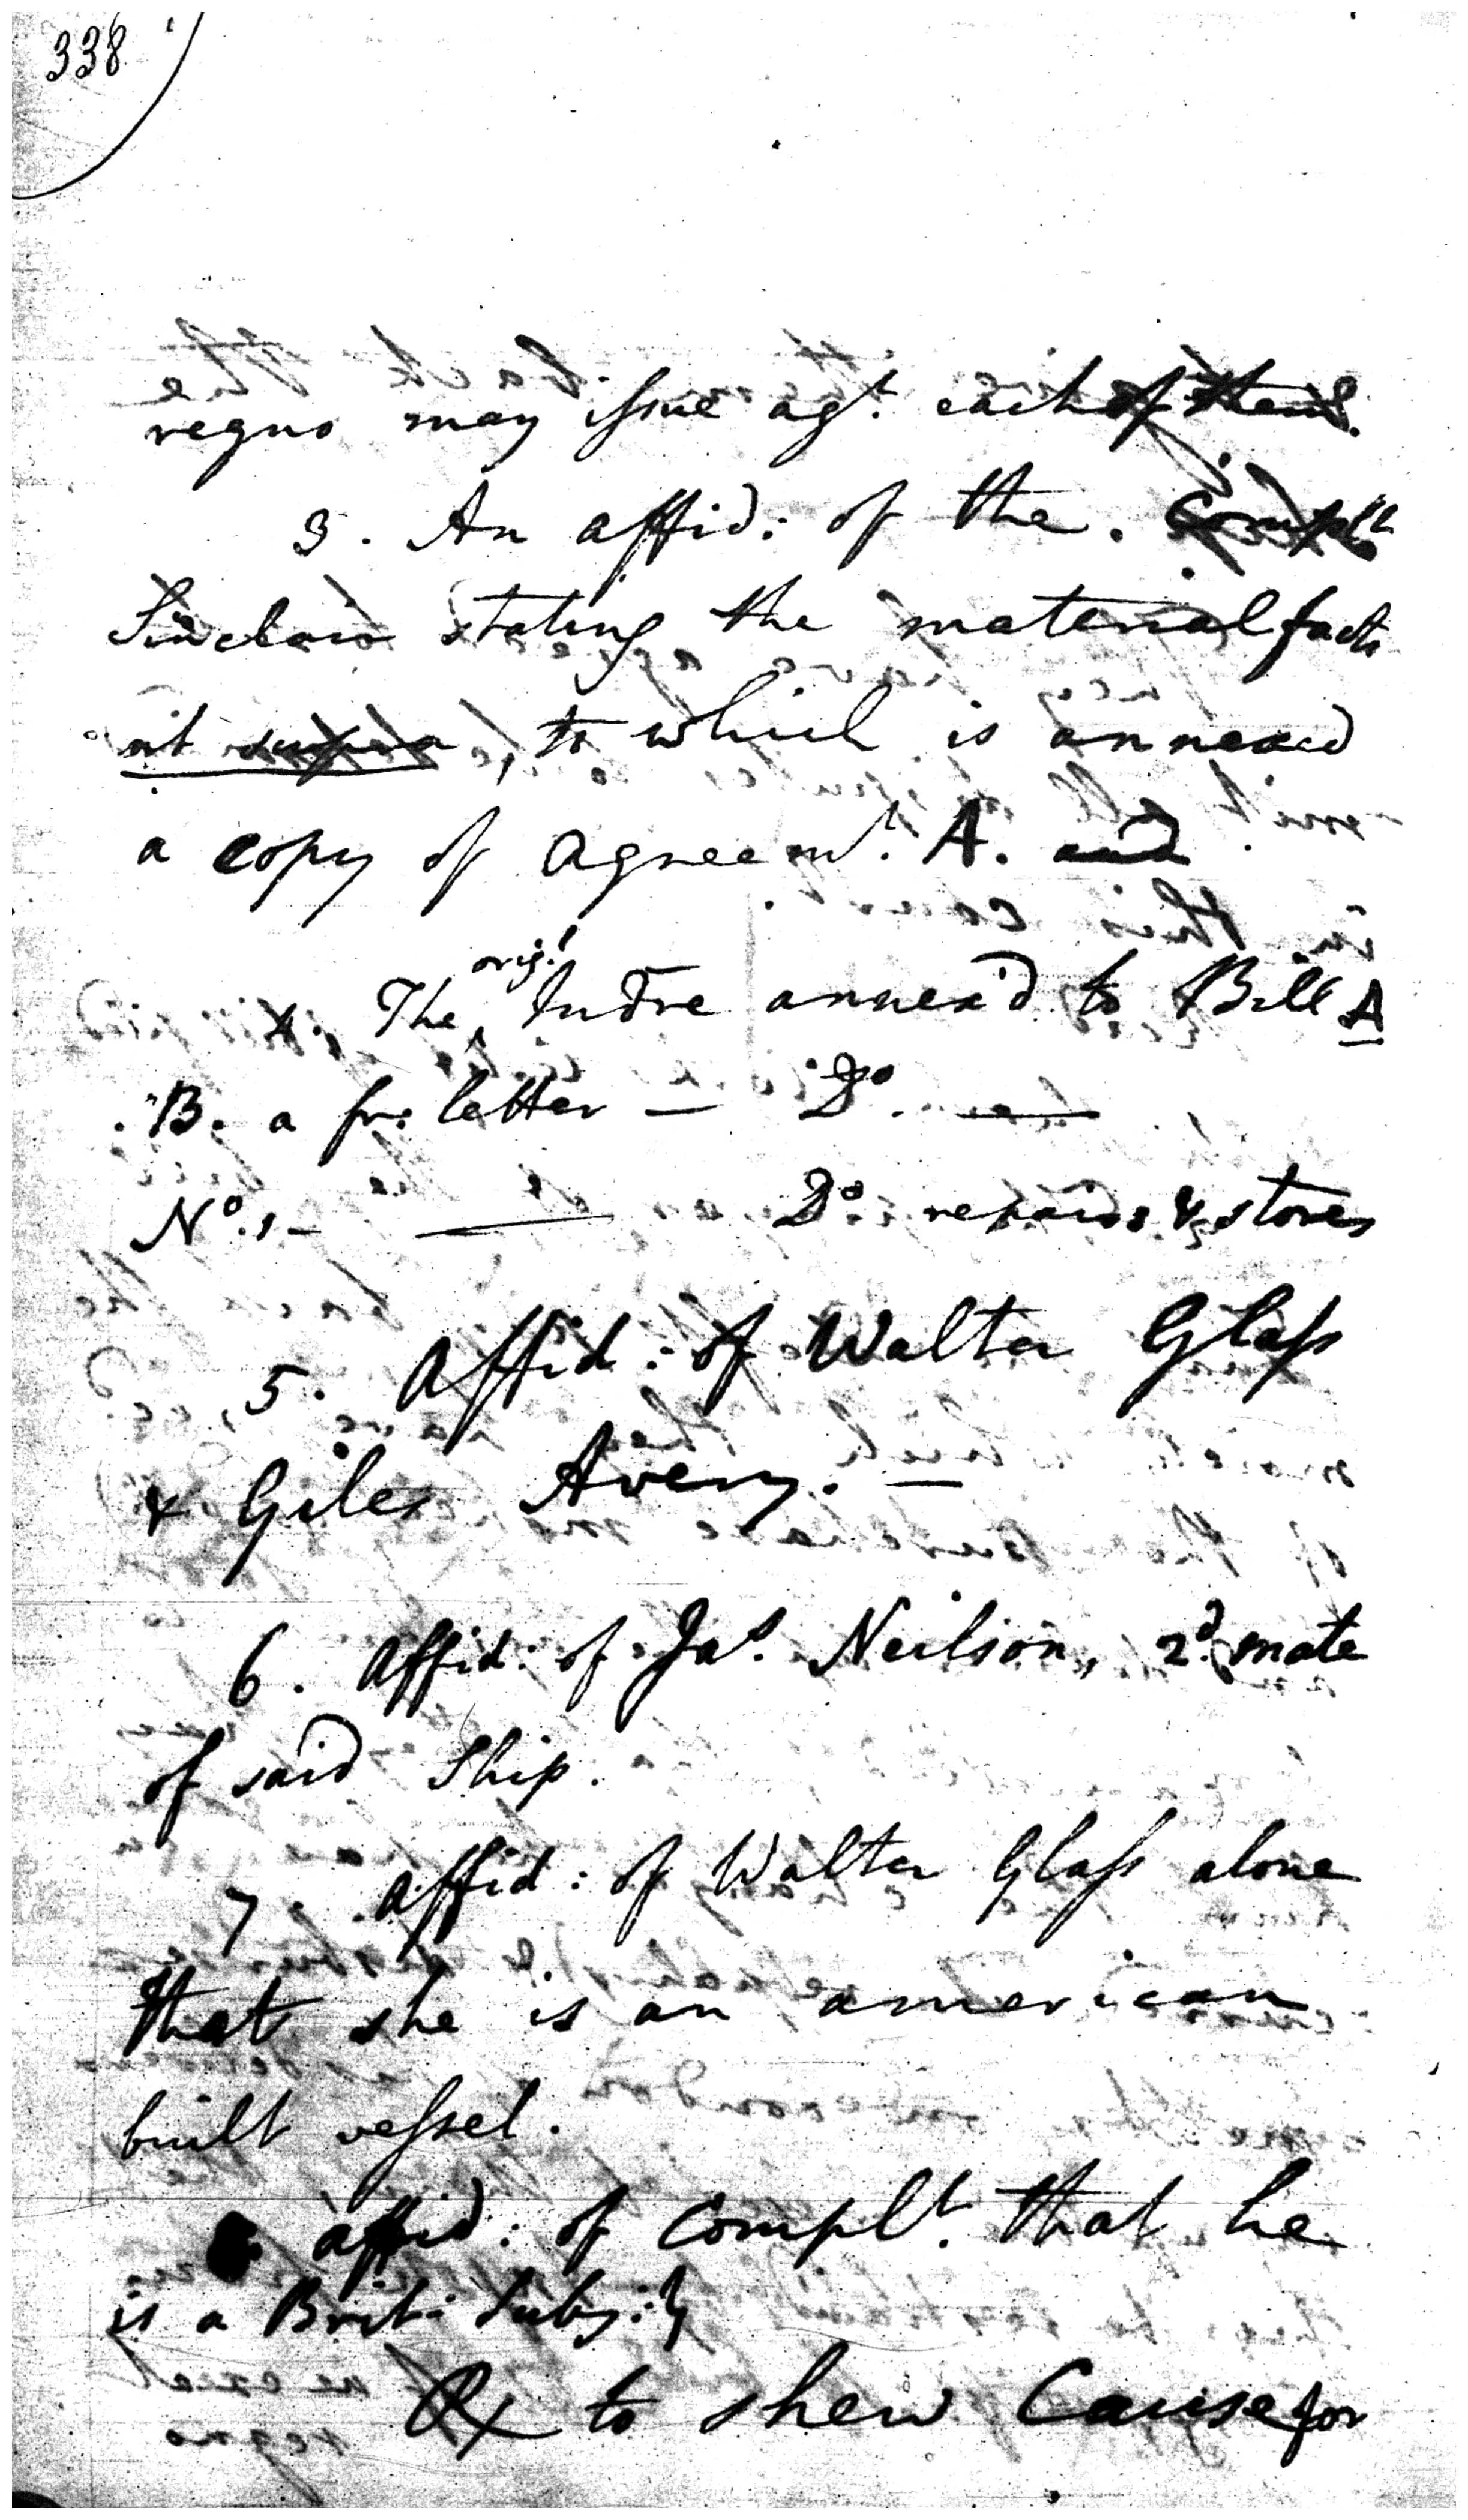 338
regno may issue agt. each of them.
3. An affid: of the. Complt
Sinclair stating the material facts
ut supra, to which is annexed
a copy of agreemt. A. and
origl.
4. The ^ Indre annex'd to Bill A
B. a fr. letter — Do. —
No. 1 — — Do repairs & stores
5. Affid: of Walter Glass
& Giles Avery. —
6. Affid: of Jas. Neilson, 2d. mate
of said Ship.
7. Affid: of Walter Glass alone
that she is an american
built vessel.
affid: of Complt. that he
is a Brit: Subj:
Rx to shew Cause for